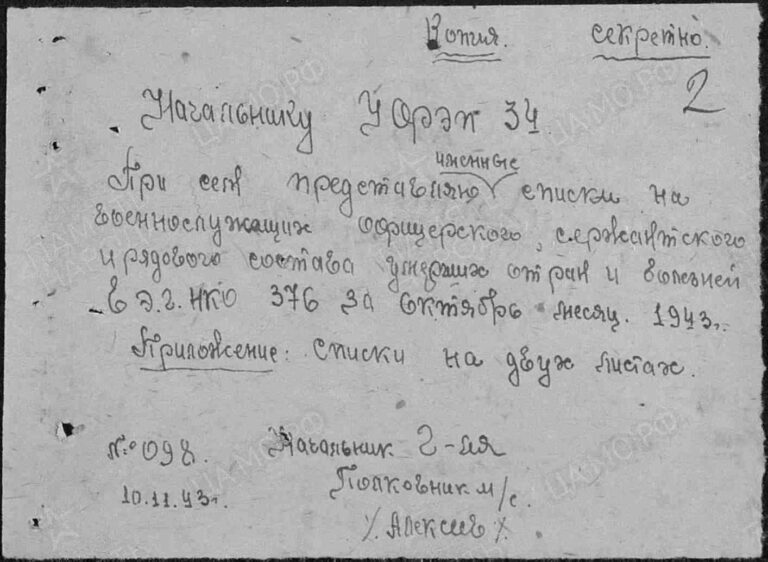 Копия. секретно.
2
Начальнику УОРЭП 34
именные
При сем представляю списки на
военнослужащих офицерского, сержантского
и рядового состава умерших от ран и болезней
в Э.Г. НКО 376 за октябрь месяц. 1943г.
Приложение: списки на двух листах.
№ 098. Начальник Г-ля
10.11.43г. Полковник м/с.
/Алексеев/
ЦАМО.РФ